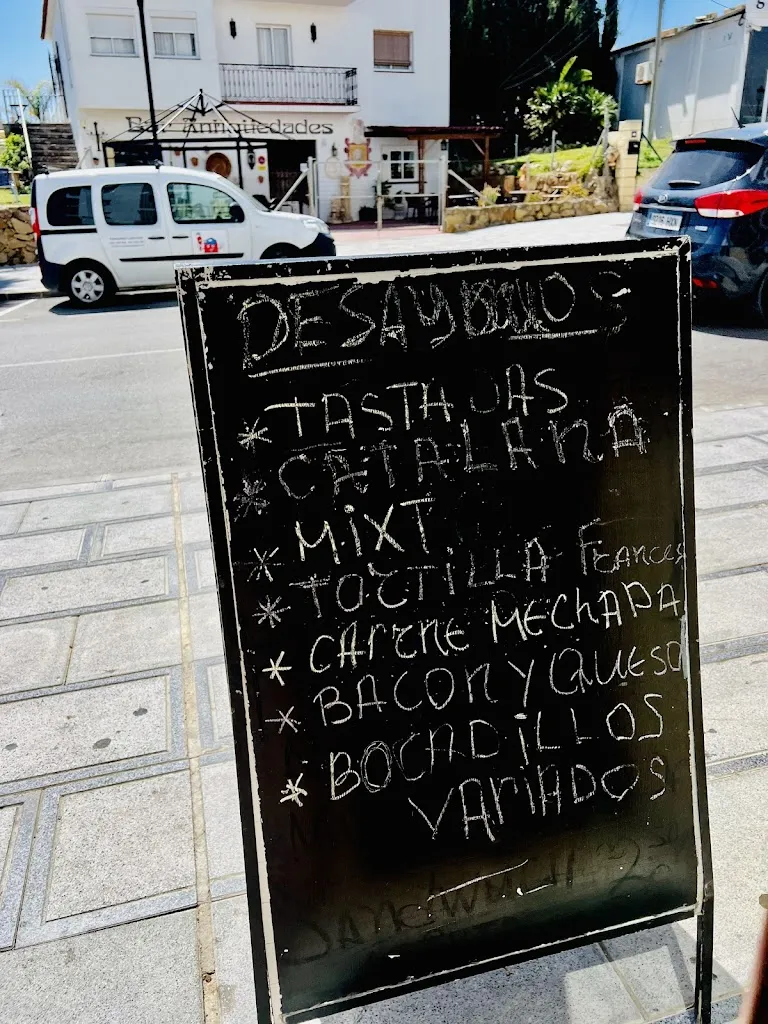 Bar Antiguedades
DESAYUNOS
* TASTADAS
* CATALANA
* MIXT
* TORTILLA FRANCES
* CARNE MECHADA
* BACON Y QUESO
* BOCADILLOS
VARIADOS